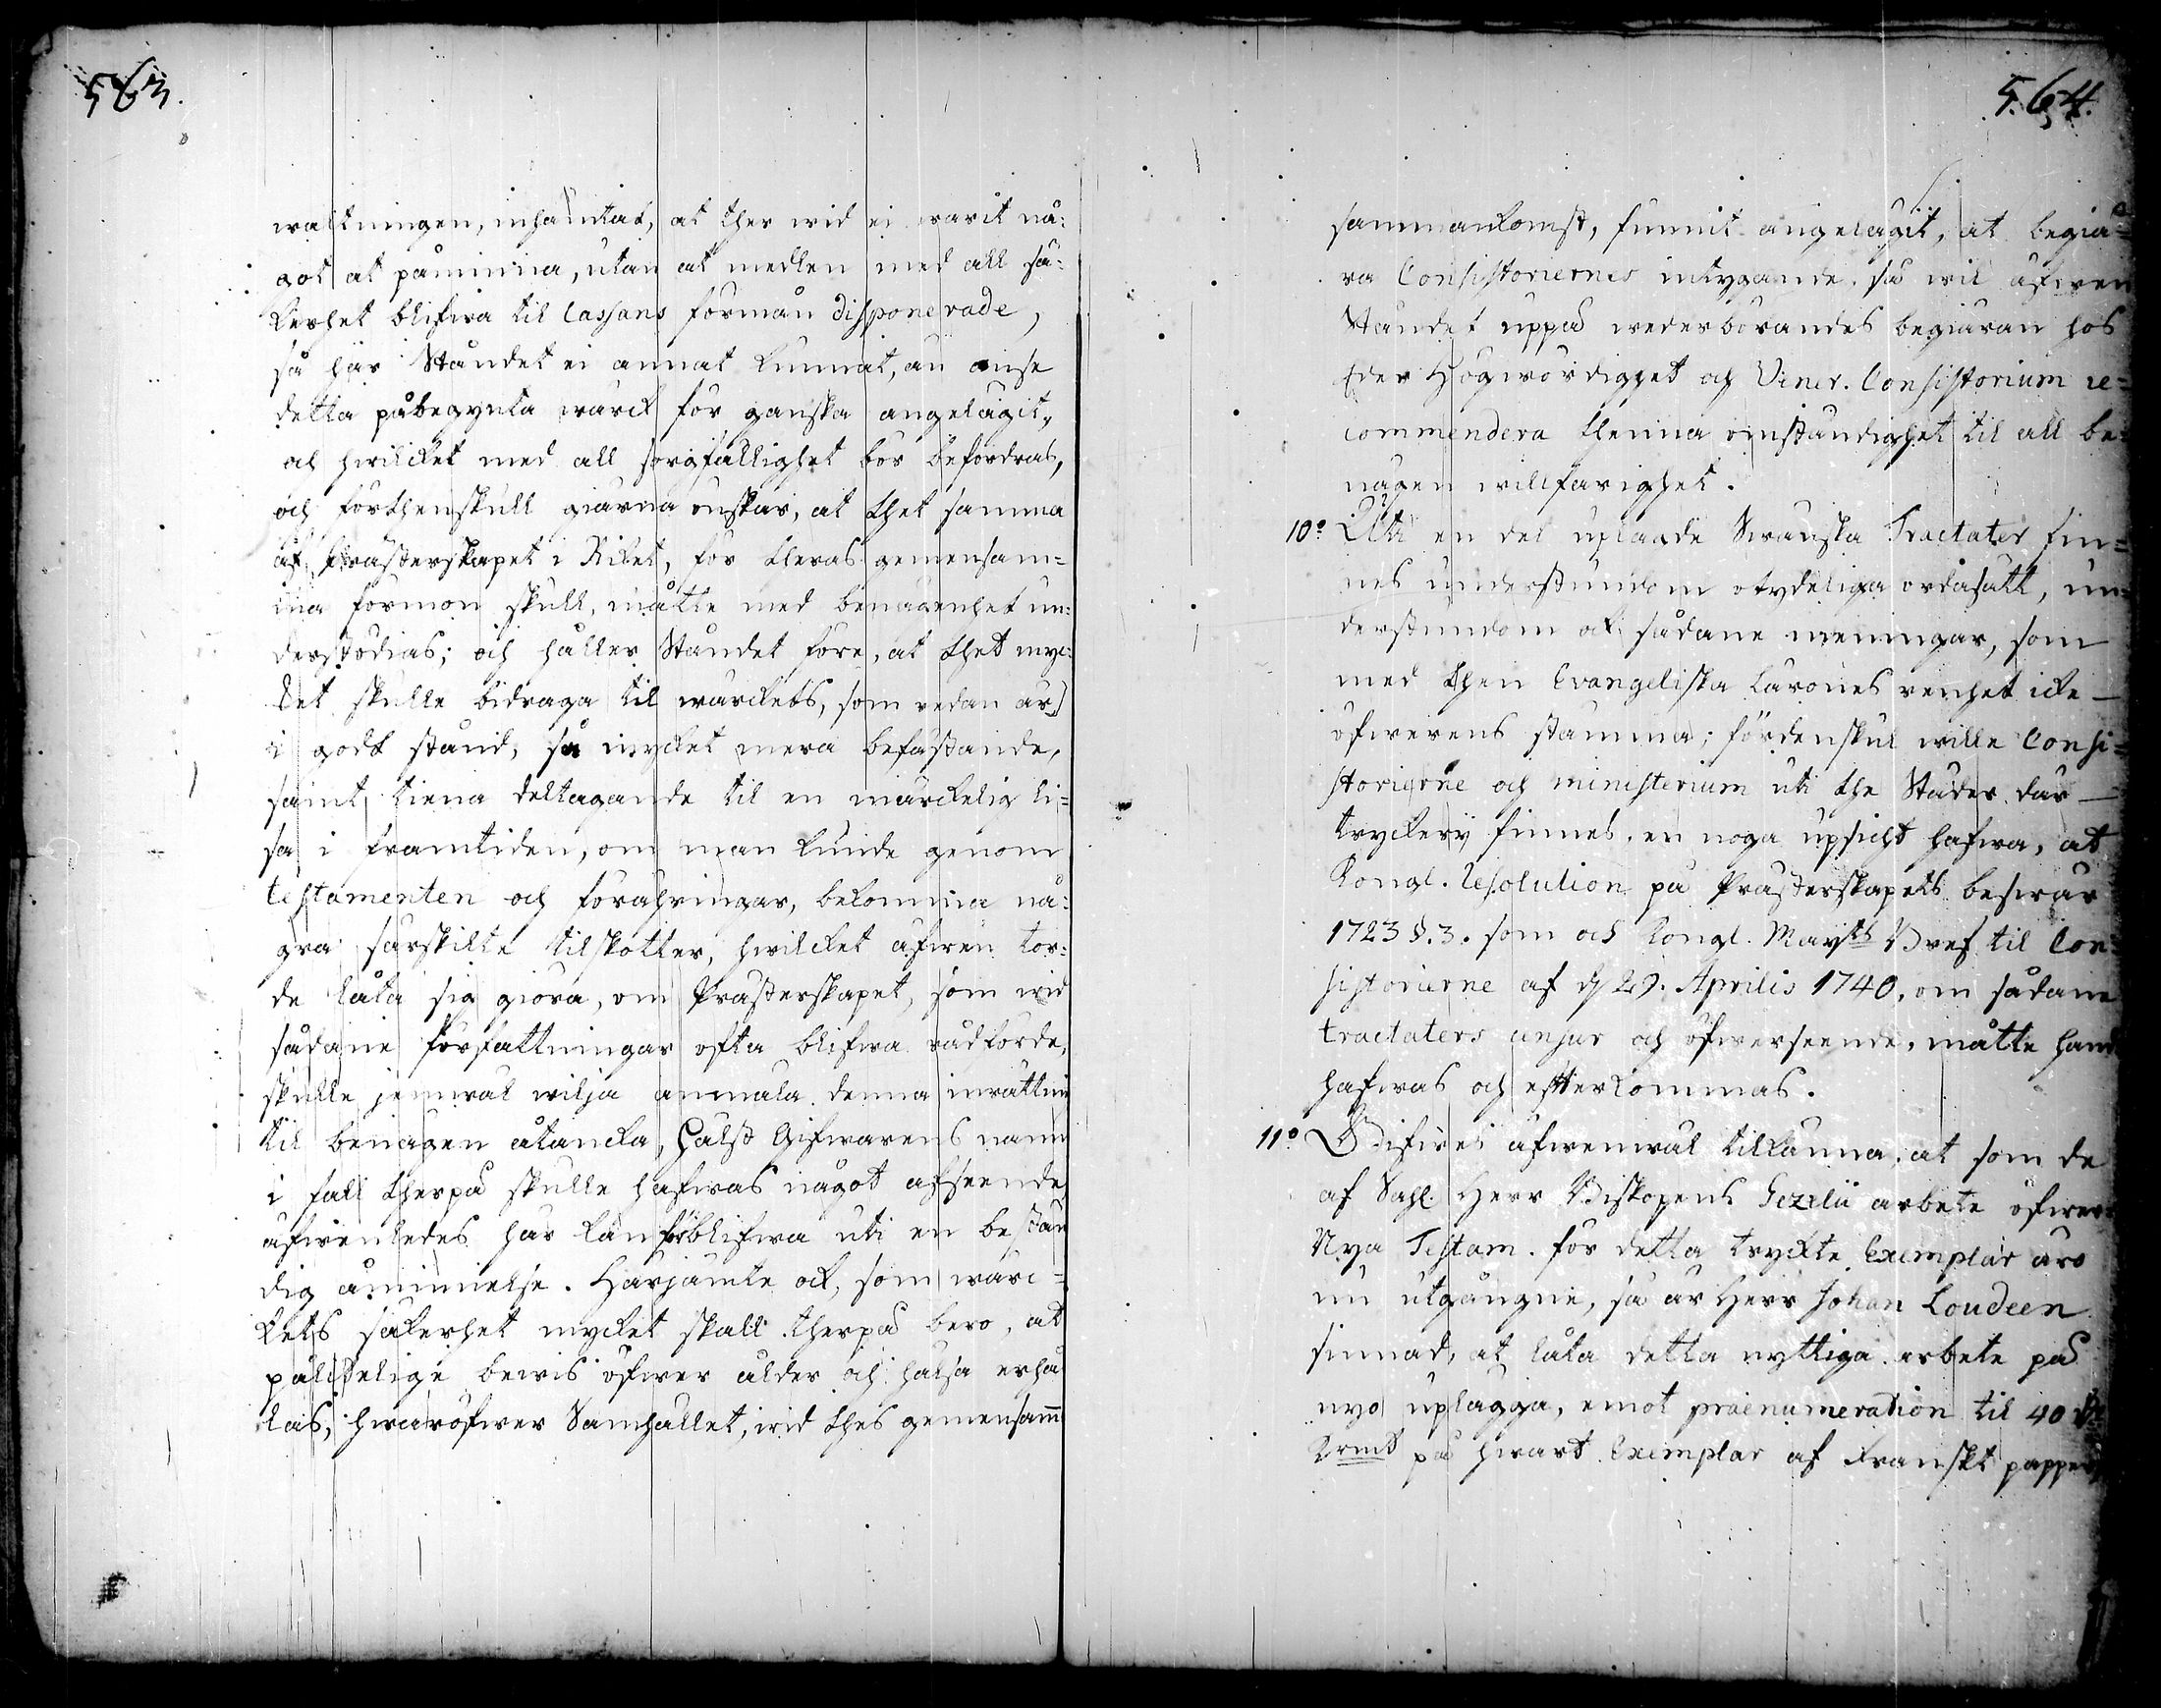 563.
waltningen, inhämtat, at ther wid ei warit nå-
got at påminna, utan at medlen med all sä-
kerhet blifwa til Cassans förmån disponerade,
så har Ståndet ei annat kunnat, än anse
detta påbegynta wärck för ganska angelägit,
och hwilcket med all sorgfällighet bör befordras,
och förthenskull giärna önskar, at thet samma
af Prästerskapet i Riket, för theras gemensam=
ma förmon skull, måtte med benägenhet un-
derstödias; och håller Ståndet före, at thet myc-
ket skulle bidraga til wärckets, som redan är
i godt stånd, så mycket mera befästande,
samt tiena deltagande til en märckelig li=
sa i framtiden, om man kunde genom
testamenten och förähringar, bekomma nå-
gra särskilte tilskotter, hwilcket äfwen tor-
de låta sig giöra, om Prästerskapet, som wid
sådane författningar ofta blifwa rådförde,
skulle jemwäl wilja anmäla denna inrättni
til benägen åtancka, hälst Gifwarens namn
i fall therpå skulle hafwas något afseende
äfwenledes här kan förblifwa uti en bestän
dig åminnelse. Härjämte ock, som wärc=
kets säkerhet mycket skall therpå bero, at
pålitelige bewis öfwer ålder och hälsa erhå
las, hwaröfwer Samhället, wid thes gemensam
564.
sammankomst, funnit angelägit, at begiä=
ra Consistoriernes intygande, så wil äfwen
Ståndet uppå wederbörandes begiäran hos
Eder Högwördighet och Vener. Consistorium re=
commendera thenna omständighet til all be-
nägen willfarighet.
10:o Uti en del uplagde Swänska Tractater fin=
nes understundom otydeliga ordasätt, un=
derstundom ock sådane meningar, som
med then Evangeliska Lärones renhet icke
öfwerens stämma; fördenskul wille Consi=
storierne och ministerium uti the Städer, där
tryckerij finnes, en noga upsicht hafwa, at
Kongl. Resolution på Prästerskapets beswär
1723 §. 3. som ock Kongl. Maijts Bref til Con-
sistorierne af d 29. Aprilis 1740, om sådane
tractaters censur och öfwerseende, måtte hand
hafwas och efterkommas.
11:o Gifwes äfwenwäl tilkänna, at som de
af Sahl. Herr Biskopens Gezelii arbete öfwer
Nya Testam. för detta tryckte Exemplar äro
nu utgångne, så är Herr Johan Loudeen
sinnad, at låta detta nyttiga arbete på
nyo uplägga, emot praenumeration til 40 Dr
Krmt på hwart Exemplar af Franskt papper